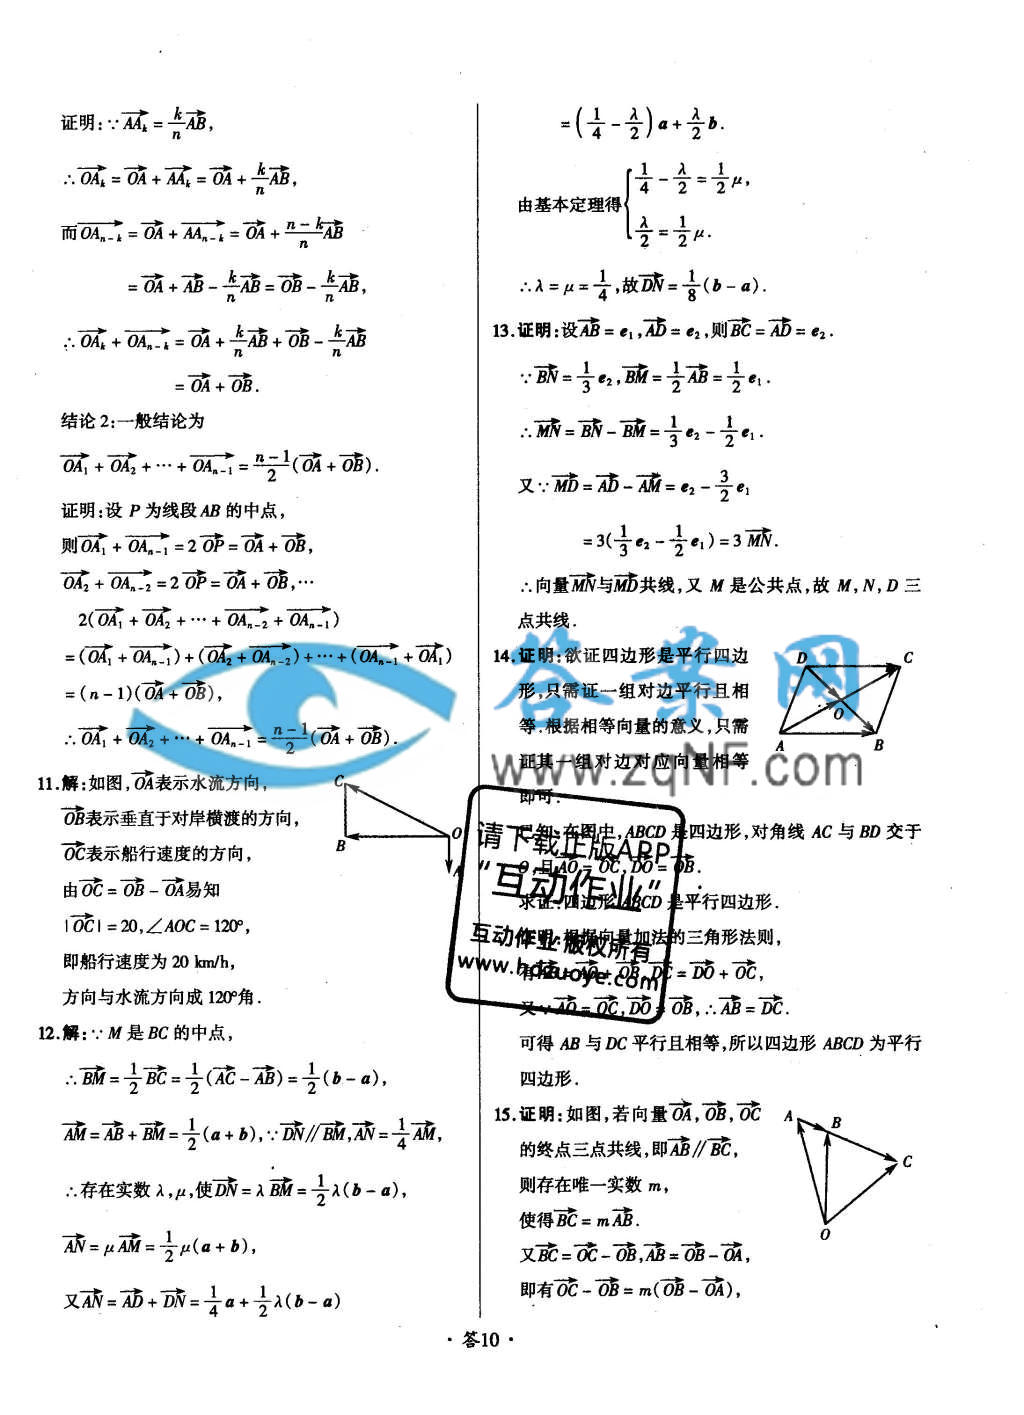 证明:∵$\overrightarrow{AA_k}=\frac{k}{n}\overrightarrow{AB}$,
∴$\overrightarrow{OA_k}=\overrightarrow{OA}+\overrightarrow{AA_k}=\overrightarrow{OA}+\frac{k}{n}\overrightarrow{AB}$,
而$\overrightarrow{OA_{n-k}}=\overrightarrow{OA}+\overrightarrow{AA_{n-k}}=\overrightarrow{OA}+\frac{n-k}{n}\overrightarrow{AB}$
$=\overrightarrow{OA}+\overrightarrow{AB}-\frac{k}{n}\overrightarrow{AB}=\overrightarrow{OB}-\frac{k}{n}\overrightarrow{AB}$,
∴$\overrightarrow{OA_k}+\overrightarrow{OA_{n-k}}=\overrightarrow{OA}+\frac{k}{n}\overrightarrow{AB}+\overrightarrow{OB}-\frac{k}{n}\overrightarrow{AB}$
$=\overrightarrow{OA}+\overrightarrow{OB}$.
结论2:一般结论为
$\overrightarrow{OA_1}+\overrightarrow{OA_2}+\cdots+\overrightarrow{OA_{n-1}}=\frac{n-1}{2}(\overrightarrow{OA}+\overrightarrow{OB})$.
证明:设 P 为线段 AB 的中点,
则$\overrightarrow{OA_1}+\overrightarrow{OA_{n-1}}=2\overrightarrow{OP}=\overrightarrow{OA}+\overrightarrow{OB}$,
$\overrightarrow{OA_2}+\overrightarrow{OA_{n-2}}=2\overrightarrow{OP}=\overrightarrow{OA}+\overrightarrow{OB}$,⋯
$2(\overrightarrow{OA_1}+\overrightarrow{OA_2}+\cdots+\overrightarrow{OA_{n-2}}+\overrightarrow{OA_{n-1}})$
$=(\overrightarrow{OA_1}+\overrightarrow{OA_{n-1}})+(\overrightarrow{OA_2}+\overrightarrow{OA_{n-2}})+\cdots+(\overrightarrow{OA_{n-1}}+\overrightarrow{OA_1})$
$=(n-1)(\overrightarrow{OA}+\overrightarrow{OB})$,
∴$\overrightarrow{OA_1}+\overrightarrow{OA_2}+\cdots+\overrightarrow{OA_{n-1}}=\frac{n-1}{2}(\overrightarrow{OA}+\overrightarrow{OB})$.
11.解:如图,$\overrightarrow{OA}$表示水流方向,
$\overrightarrow{OB}$表示垂直于对岸横渡的方向,
$\overrightarrow{OC}$表示船行速度的方向,
由$\overrightarrow{OC}=\overrightarrow{OB}-\overrightarrow{OA}$易知
$|\overrightarrow{OC}|=20$,∠AOC=120°,
即船行速度为 20 km/h,
方向与水流方向成 120°角.
C
O
B
A
12.解:∵ M 是 BC 的中点,
∴$\overrightarrow{BM}=\frac{1}{2}\overrightarrow{BC}=\frac{1}{2}(\overrightarrow{AC}-\overrightarrow{AB})=\frac{1}{2}(b-a)$,
$\overrightarrow{AM}=\overrightarrow{AB}+\overrightarrow{BM}=\frac{1}{2}(a+b)$,∵$\overrightarrow{DN}∥\overrightarrow{BM}$,$\overrightarrow{AN}=\frac{1}{4}\overrightarrow{AM}$,
∴存在实数 λ,μ,使$\overrightarrow{DN}=λ\overrightarrow{BM}=\frac{1}{2}λ(b-a)$,
$\overrightarrow{AN}=μ\overrightarrow{AM}=\frac{1}{2}μ(a+b)$,
又$\overrightarrow{AN}=\overrightarrow{AD}+\overrightarrow{DN}=\frac{1}{4}a+\frac{1}{2}λ(b-a)$
$=(\frac{1}{4}-\frac{λ}{2})a+\frac{λ}{2}b$.
由基本定理得$\begin{cases}\frac{1}{4}-\frac{λ}{2}=\frac{1}{2}μ,\\\frac{λ}{2}=\frac{1}{2}μ.\end{cases}$
∴λ=μ=$\frac{1}{4}$,故$\overrightarrow{DN}=\frac{1}{8}(b-a)$.
13.证明:设$\overrightarrow{AB}=e_1$,$\overrightarrow{AD}=e_2$,则$\overrightarrow{BC}=\overrightarrow{AD}=e_2$.
∵$\overrightarrow{BN}=\frac{1}{3}e_2$,$\overrightarrow{BM}=\frac{1}{2}\overrightarrow{AB}=\frac{1}{2}e_1$.
∴$\overrightarrow{MN}=\overrightarrow{BN}-\overrightarrow{BM}=\frac{1}{3}e_2-\frac{1}{2}e_1$.
又∵$\overrightarrow{MD}=\overrightarrow{AD}-\overrightarrow{AM}=e_2-\frac{3}{2}e_1$
$=3(\frac{1}{3}e_2-\frac{1}{2}e_1)=3\overrightarrow{MN}$.
∴向量$\overrightarrow{MN}$与$\overrightarrow{MD}$共线,又 M 是公共点,故 M,N,D 三
点共线.
14.证明:欲证四边形是平行四边
形,只需证一组对边平行且相
等.根据相等向量的意义,只需
证其一组对边对应向量相等
即可.
D
C
O
A
B
已知:在图中,ABCD 是四边形,对角线 AC 与 BD 交于
O,且$\overrightarrow{AO}=\overrightarrow{OC}$,$\overrightarrow{DO}=\overrightarrow{OB}$.
求证:四边形 ABCD 是平行四边形.
证明:根据向量加法的三角形法则,
有$\overrightarrow{AB}=\overrightarrow{AO}+\overrightarrow{OB}$,$\overrightarrow{DC}=\overrightarrow{DO}+\overrightarrow{OC}$,
又∵$\overrightarrow{AO}=\overrightarrow{OC}$,$\overrightarrow{DO}=\overrightarrow{OB}$,∴$\overrightarrow{AB}=\overrightarrow{DC}$.
可得 AB 与 DC 平行且相等,所以四边形 ABCD 为平行
四边形.
15.证明:如图,若向量$\overrightarrow{OA}$,$\overrightarrow{OB}$,$\overrightarrow{OC}$
的终点三点共线,即$\overrightarrow{AB}∥\overrightarrow{BC}$,
则存在唯一实数 m,
使得$\overrightarrow{BC}=m\overrightarrow{AB}$.
又$\overrightarrow{BC}=\overrightarrow{OC}-\overrightarrow{OB}$,$\overrightarrow{AB}=\overrightarrow{OB}-\overrightarrow{OA}$,
即有$\overrightarrow{OC}-\overrightarrow{OB}=m(\overrightarrow{OB}-\overrightarrow{OA})$,
A
B
C
O
答案网
www.zqNF.com
请下载正版APP
“互动作业”
互动作业 版权所有
www.hdzuoye.com
·答10·